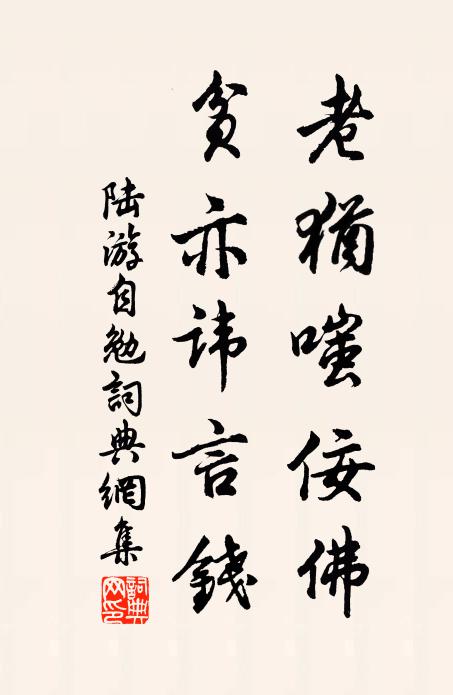 老犹嗤佞佛
贫亦讳言錢
陆游自勉詞典網集
詞典网印